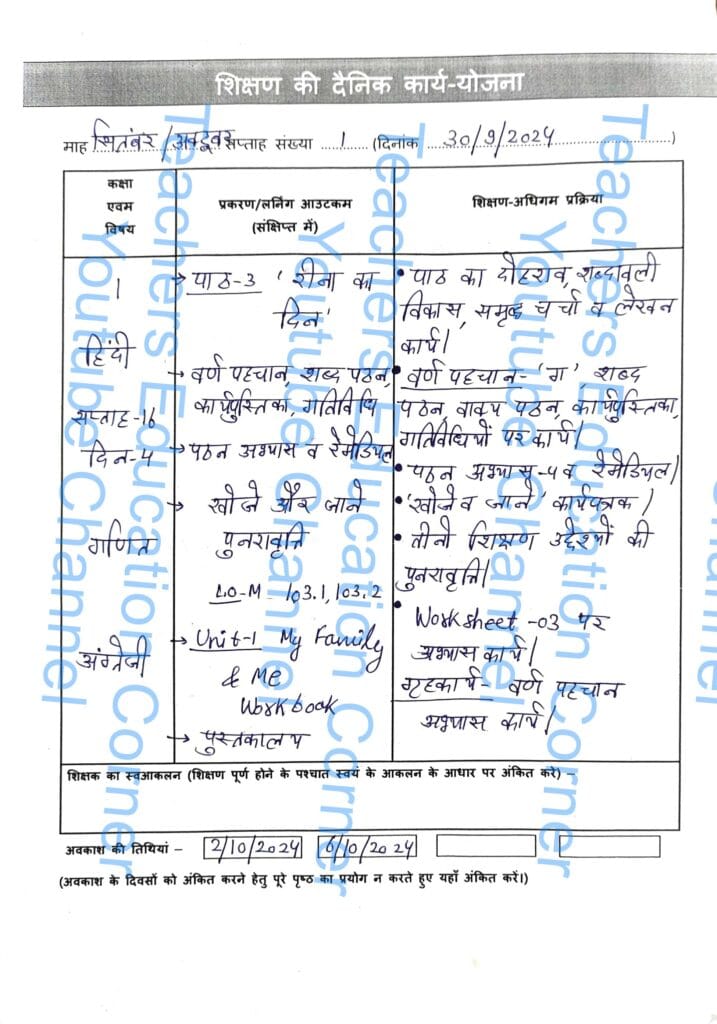 शिक्षण की दैनिक कार्य-योजना
माह सितंबर/अक्टूबर सप्ताह संख्या ....1.... (दिनांक ...30/9/2024...)
कक्षा
एवम
विषय
प्रकरण/लर्निंग आउटकम
(संक्षिप्त में)
शिक्षण-अधिगम प्रक्रिया
1
हिंदी
सप्ताह-16
दिन-4
गणित
अंग्रेजी
→ पाठ-3 'रीना का
दिन'
→ वर्ण पहचान, शब्द पठन,
कार्यपुस्तिका, गतिविधि
→ पठन अभ्यास व रेमेडियल
→ खोजे और जाने
पुनरावृत्ति
LO-M- 103.1, 103.2
→ Unit-1 My Family
& Me
Workbook
→ पुस्तकालय
• पाठ का दोहराव, शब्दावली
विकास, समृद्ध चर्चा व लेखन
कार्य।
• वर्ण पहचान - 'ग', शब्द
पठन, वाक्य पठन, कार्यपुस्तिका,
गतिविधियों पर कार्य।
• पठन अभ्यास-4 व रेमेडियल।
• 'खोजे व जाने' कार्यपत्रक।
• तीनो शिक्षण उद्देश्यों की
पुनरावृत्ति।
• Worksheet -03 पर
अभ्यास कार्य।
गृहकार्य- वर्ण पहचान
अभ्यास कार्य।
शिक्षक का स्वआकलन (शिक्षण पूर्ण होने के पश्चात स्वयं के आकलन के आधार पर अंकित करे) –
अवकाश की तिथियां – 2/10/2024 6/10/2024
(अवकाश के दिवसों को अंकित करने हेतु पूरे पृष्ठ का प्रयोग न करते हुए यहाँ अंकित करें।)
Teachers Education Corner
Youtube Channel
Teachers Education Corner
Youtube Channel
Teachers Education Corner
Youtube Channel
Channel